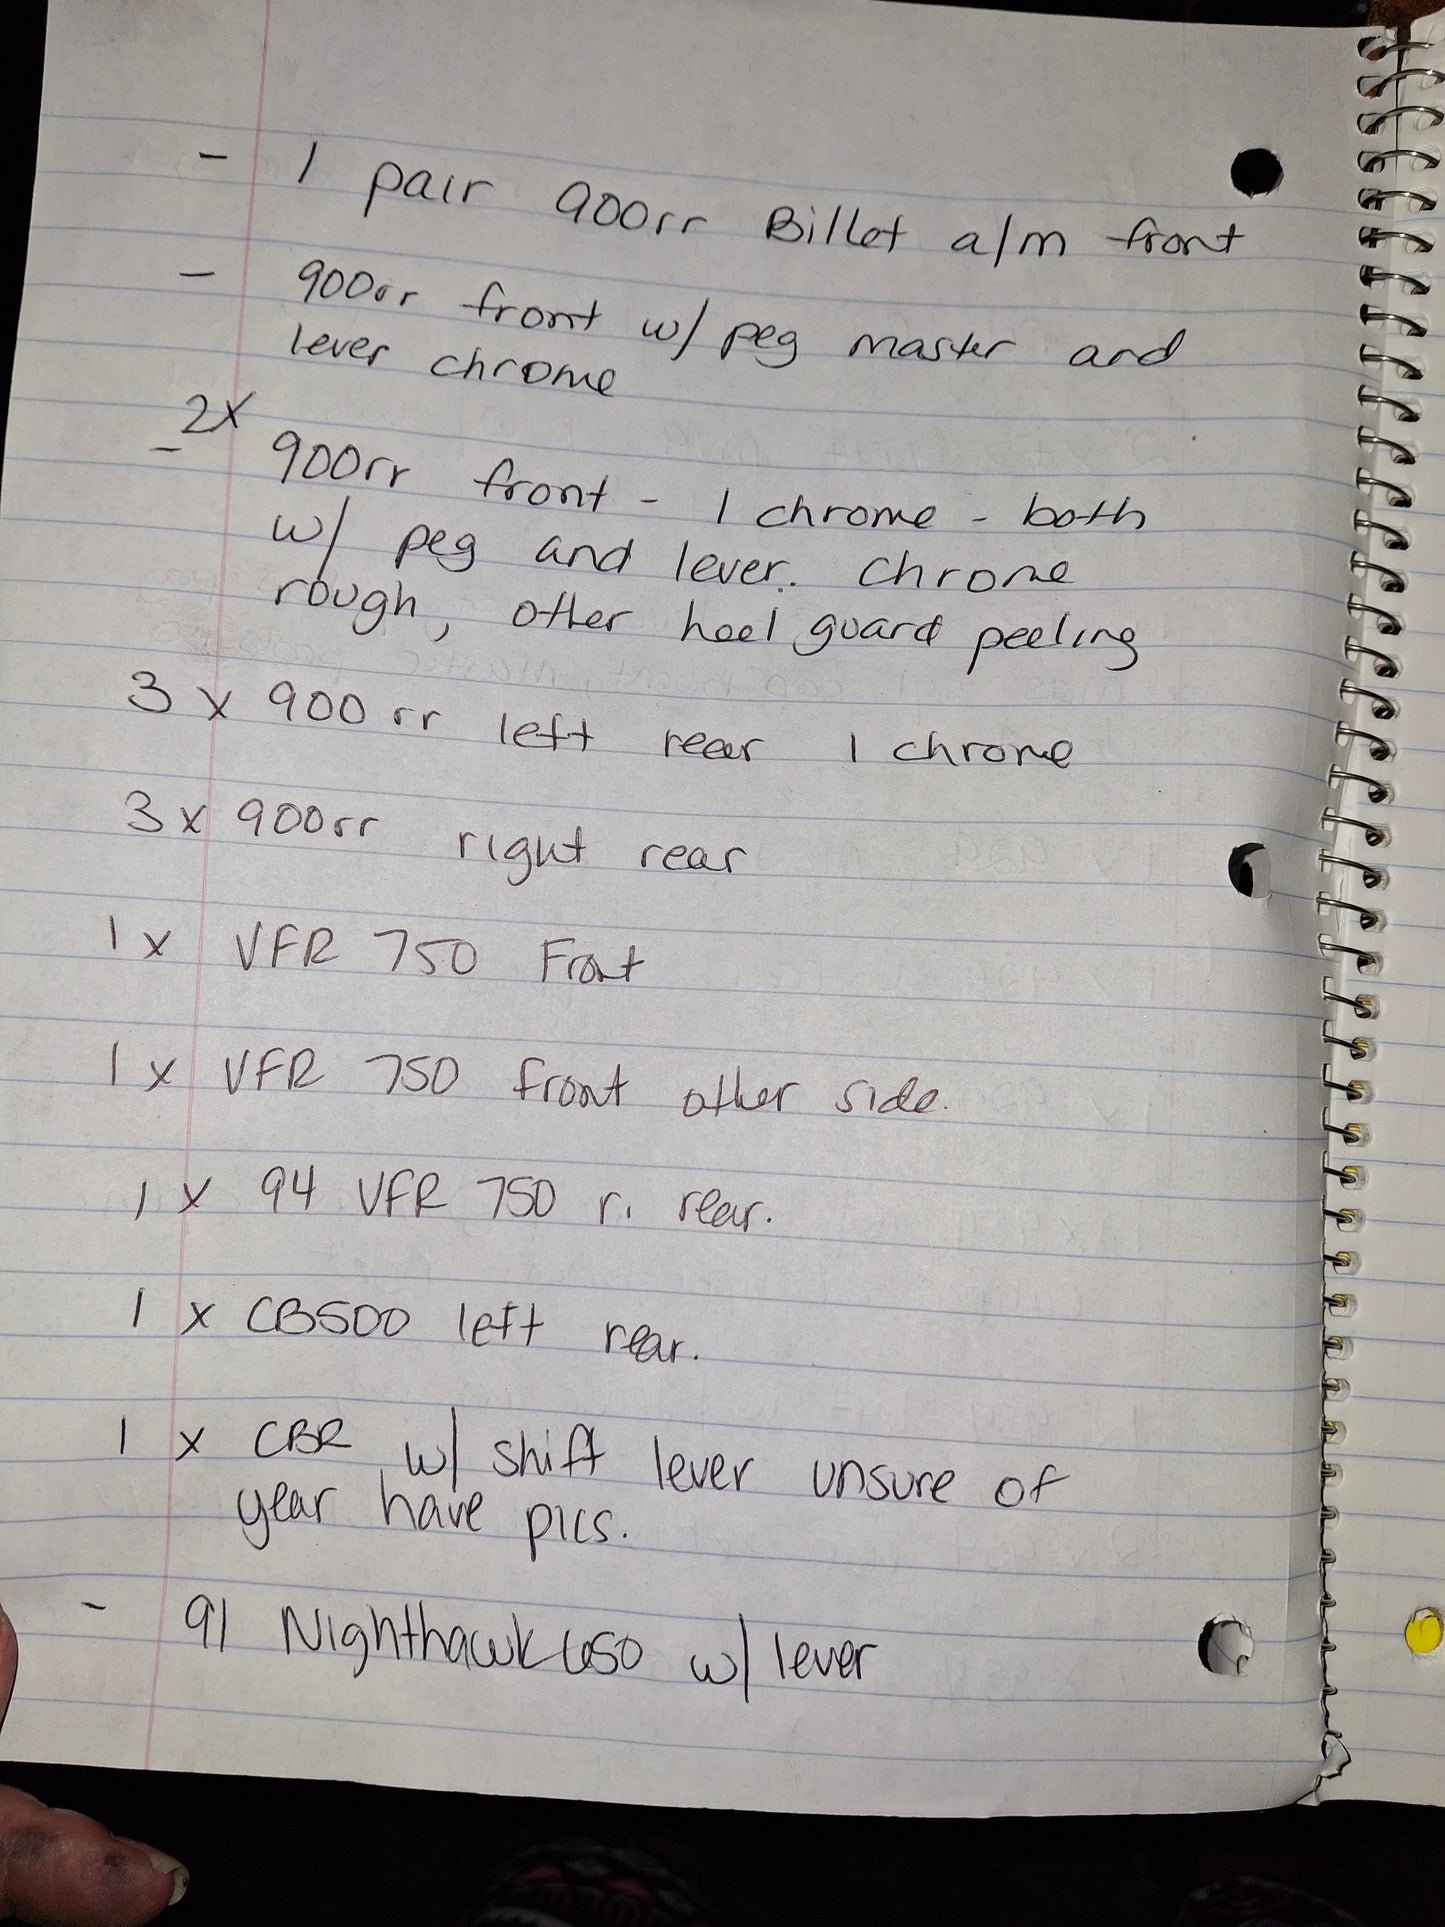 - 1 pair 900rr Billet a/m front
- 900rr front w/ peg master and
lever chrome
- 2x 900rr front - 1 chrome - both
w/ peg and lever. Chrome
rough, other heel guard peeling
3 x 900rr left rear 1 chrome
3 x 900rr right rear
1 x VFR 750 Front
1 x VFR 750 front other side.
1 x 94 VFR 750 r. rear.
1 x CB500 left rear.
1 x CBR w/ shift lever unsure of
year have pics.
- 91 Nighthawk 650 w/ lever